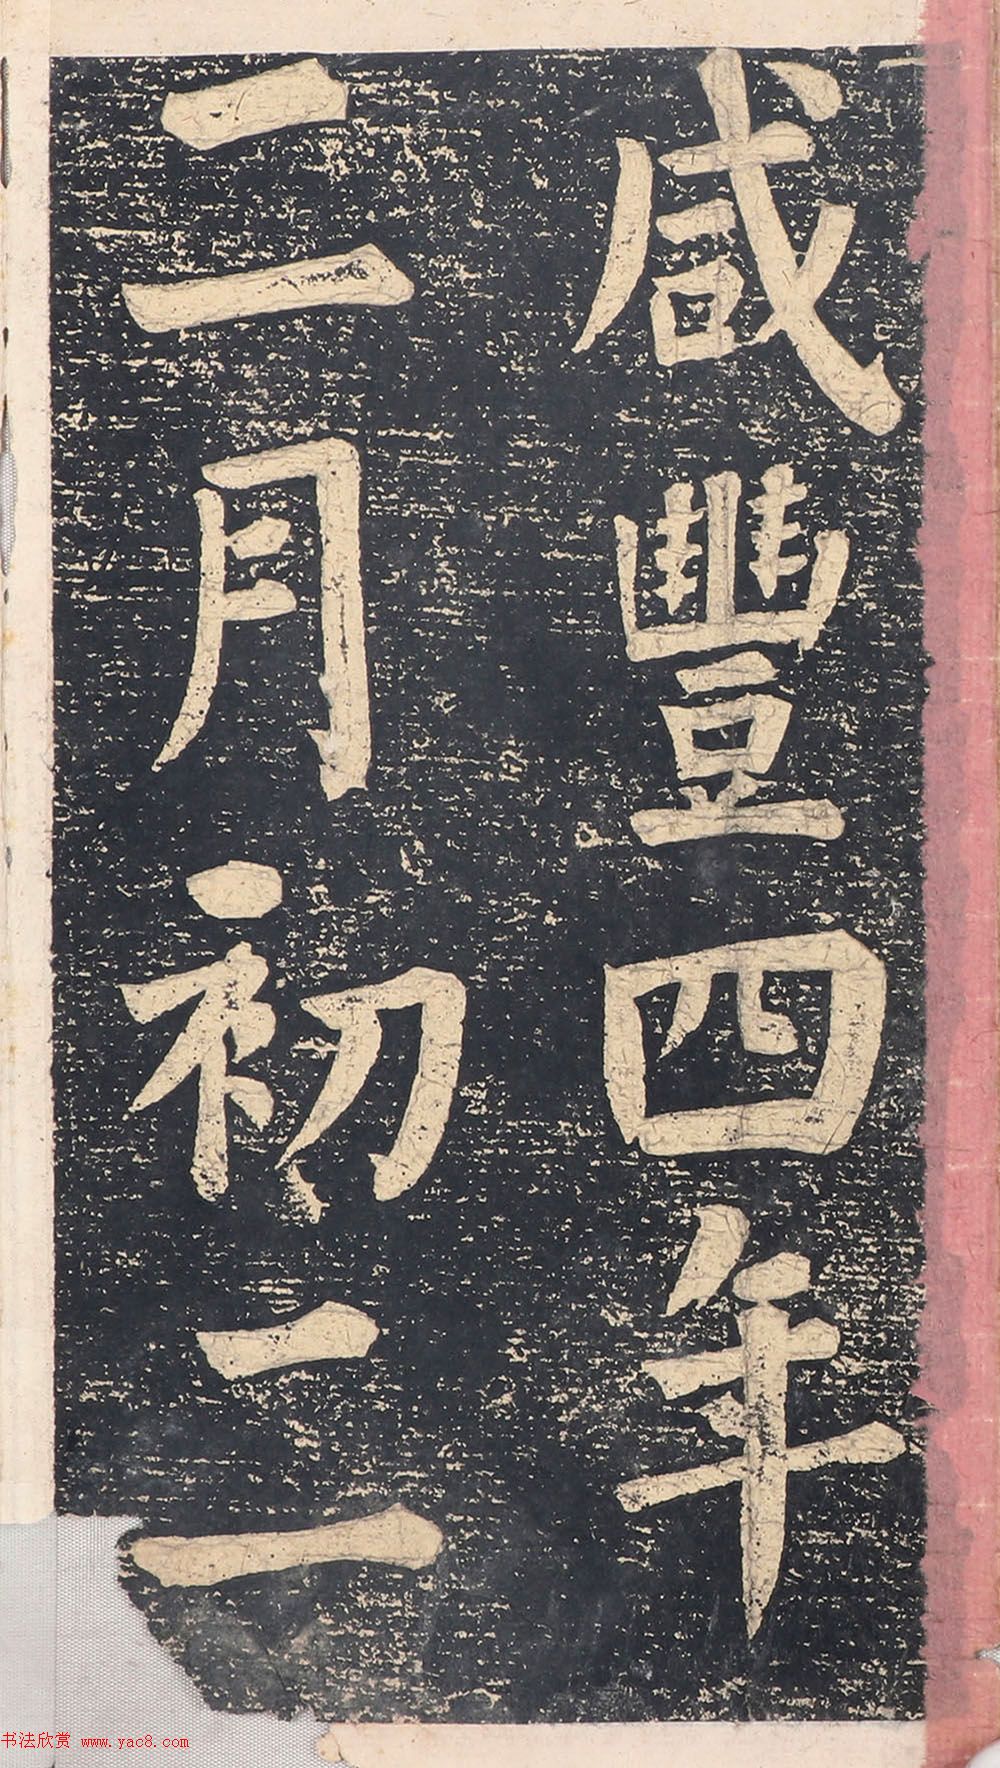 咸豐四年
二月初二
书法欣赏 www.yac8.com